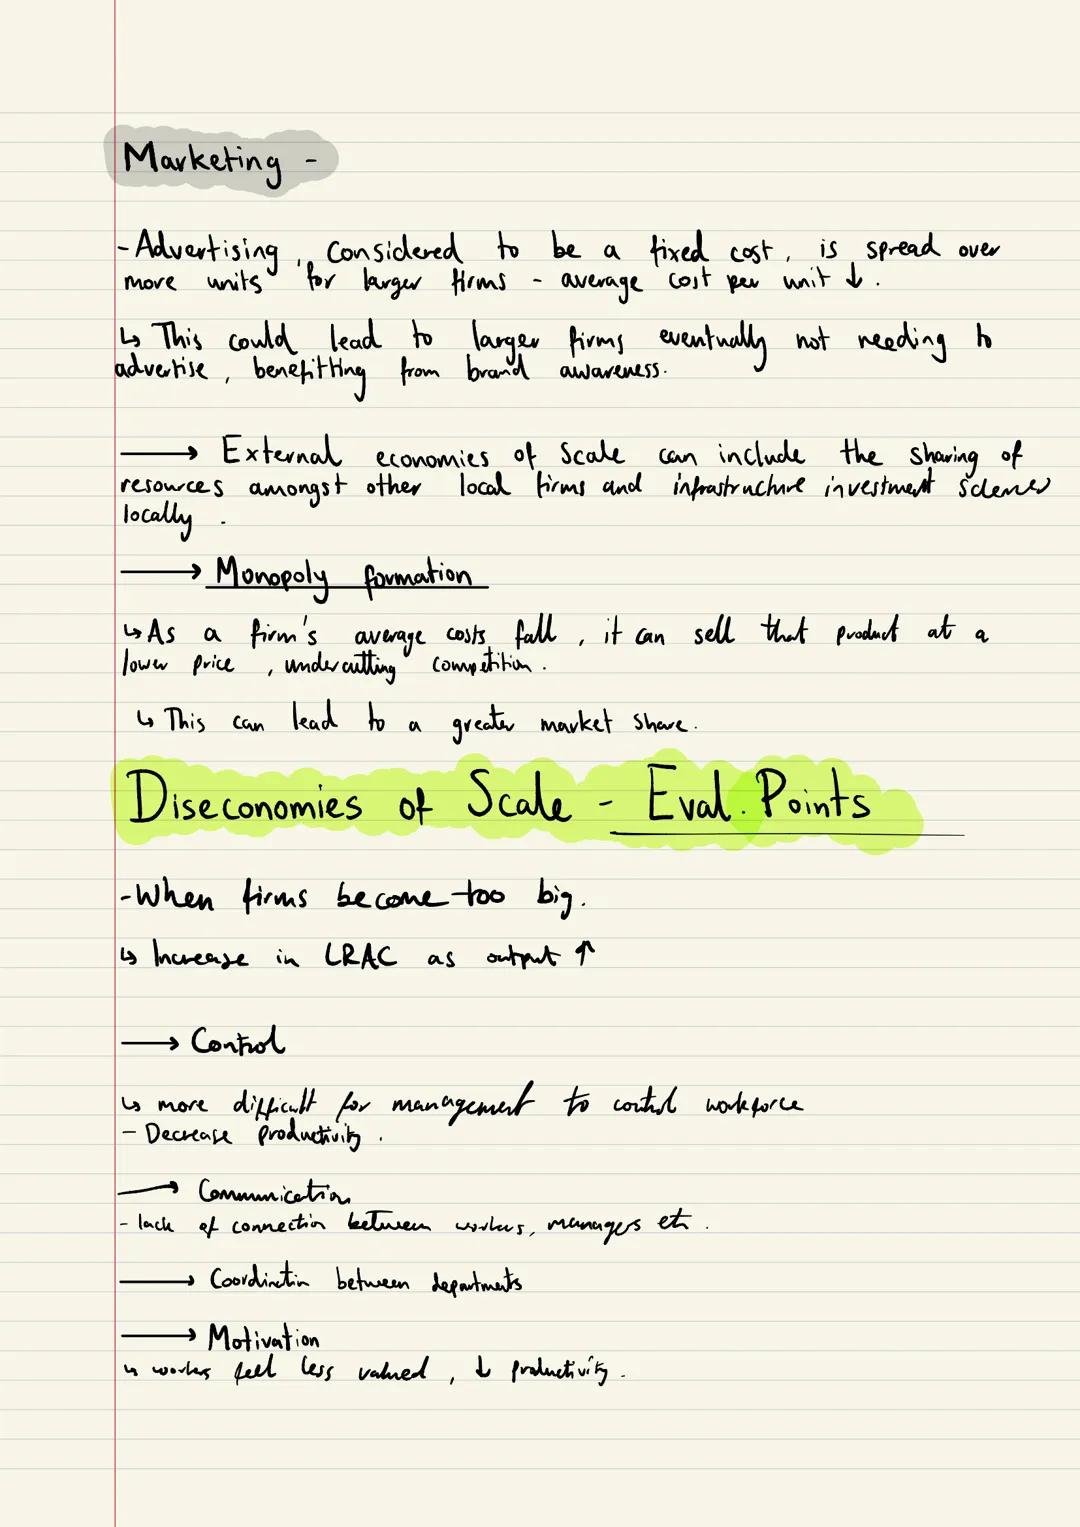 Marketing -
- Advertising, considered to be a fixed cost, is spread over
more units for larger firms - average cost per unit ↓.
↳ This could lead to larger firms eventually not needing to
advertise, benefitting from brand awareness.
→ External economies of scale can include the sharing of
resources amongst other local firms and infrastructure investment schemes
locally.
→ Monopoly formation
↳ As a firm's average costs fall, it can sell that product at a
lower price, undercutting competition.
↳ This can lead to a greater market share.
Diseconomies of Scale - Eval. Points
- When firms become too big.
↳ Increase in LRAC as output ↑
→ Control
↳ more difficult for management to control workforce
- Decrease productivity.
→ Communication
- lack of connection between workers, managers etc.
→ Coordination between departments
→ Motivation
↳ workers feel less valued, ↓ productivity.